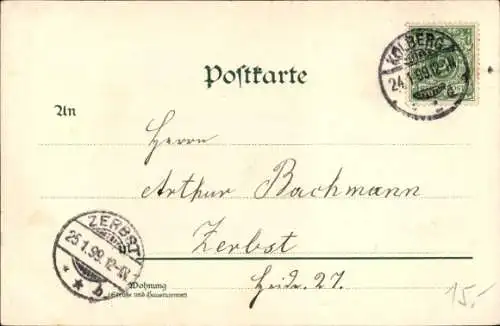 KOLBERG
24.1.99.12-1N
Postkarte
An
Herrn
Arthur Bachmann
Zerbst
Heide. 27.
ZERBST
25.1.99.12-1N
* * b
Wohnung
(Straße und Hausnummer)
15,-